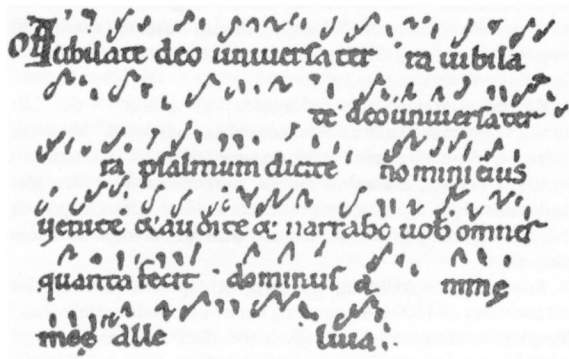 Iubilate deo universa ter ra iubila
te deo universa ter
ra psalmum dicite nomini eius
venite & audite & narrabo vob omnes
quanta fecit dominus a nimę
męę alle luia